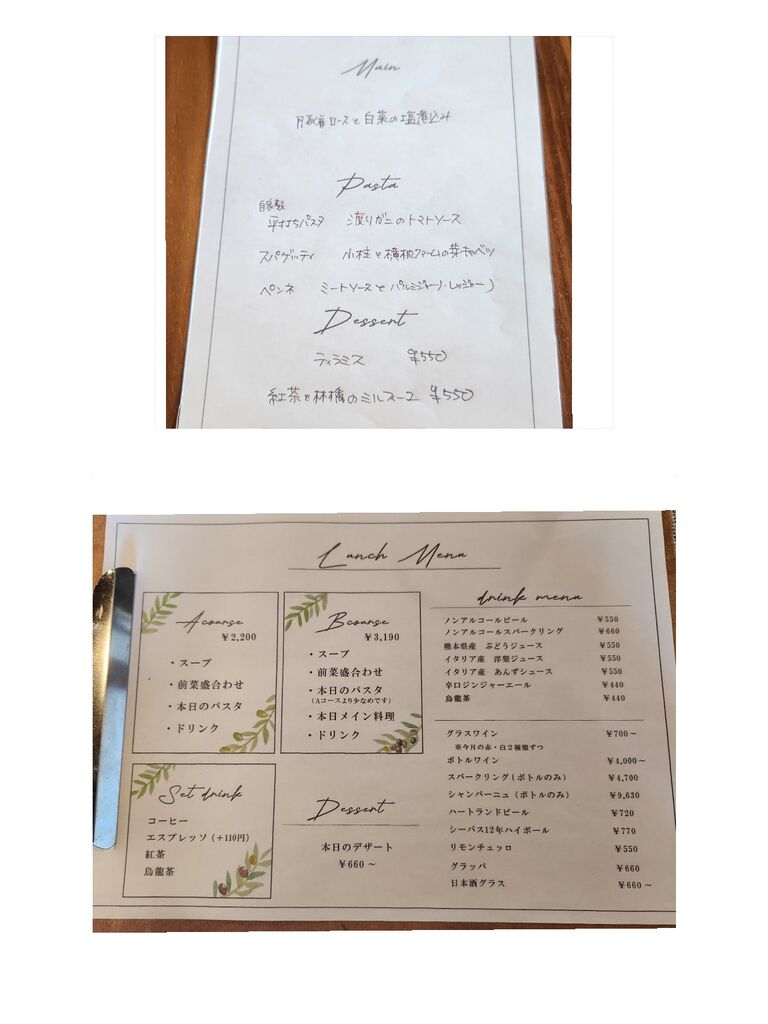 Main
豚肩ロースと白菜の塩煮込み
Pasta
自家製
平打ちパスタ 渡りガニのトマトソース
スパゲッティ 小柱と横根ファームの芽キャベツ
ペンネ ミートソースとパルミジャーノ・レッジャーノ
Dessert
ティラミス ¥550
紅茶と林檎のミルフィーユ ¥550
Lunch Menu
A course
¥2,200
・スープ
・前菜盛合わせ
・本日のパスタ
・ドリンク
B course
¥3,190
・スープ
・前菜盛合わせ
・本日のパスタ
(Aコースより少なめです)
・本日メイン料理
・ドリンク
Set drink
コーヒー
エスプレッソ(+110円)
紅茶
烏龍茶
Dessert
本日のデザート
¥660～
drink menu
ノンアルコールビール ¥550
ノンアルコールスパークリング ¥660
熊本県産 ぶどうジュース ¥550
イタリア産 洋梨ジュース ¥550
イタリア産 あんずジュース ¥550
辛口ジンジャーエール ¥440
烏龍茶 ¥440
グラスワイン ¥700～
※今月の赤・白2種類ずつ
ボトルワイン ¥4,000～
スパークリング(ボトルのみ) ¥4,700
シャンパーニュ(ボトルのみ) ¥9,630
ハートランドビール ¥720
シーバス12年ハイボール ¥770
リモンチェッロ ¥550
グラッパ ¥660
日本酒グラス ¥660～